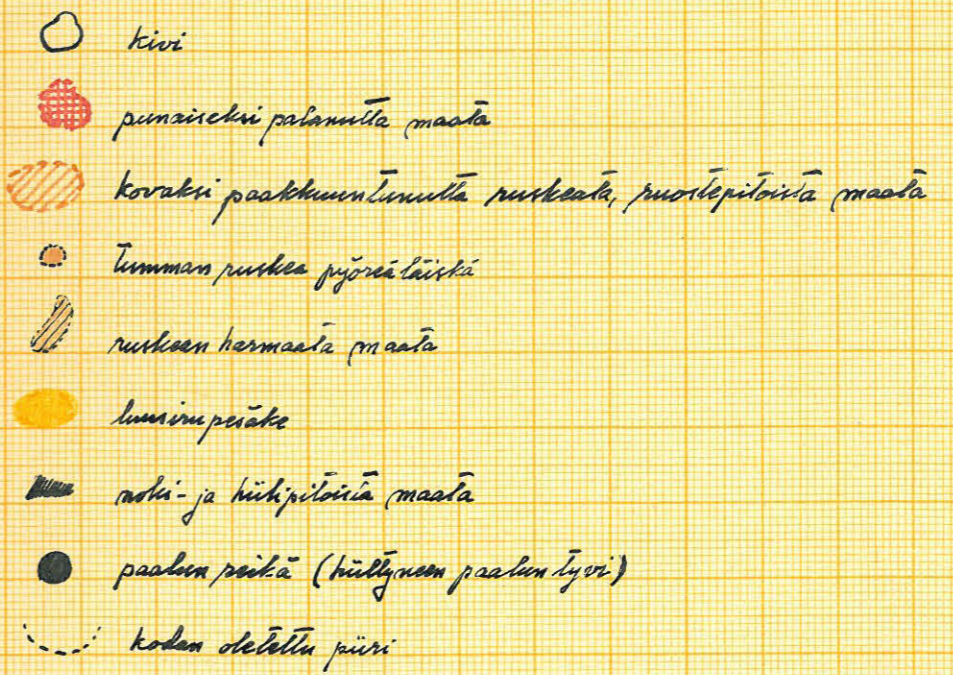 kivi
punaiseksi palanutta maata
kovaksi paakkuuntunutta ruskeata, ruostepitoista maata
tumman ruskea pyöreä läiskä
ruskean harmaata maata
luusirupesäke
noki- ja hiilipitoista maata
paalun reikä (hiiltyneen paalun tyvi)
kodan oletettu piiri